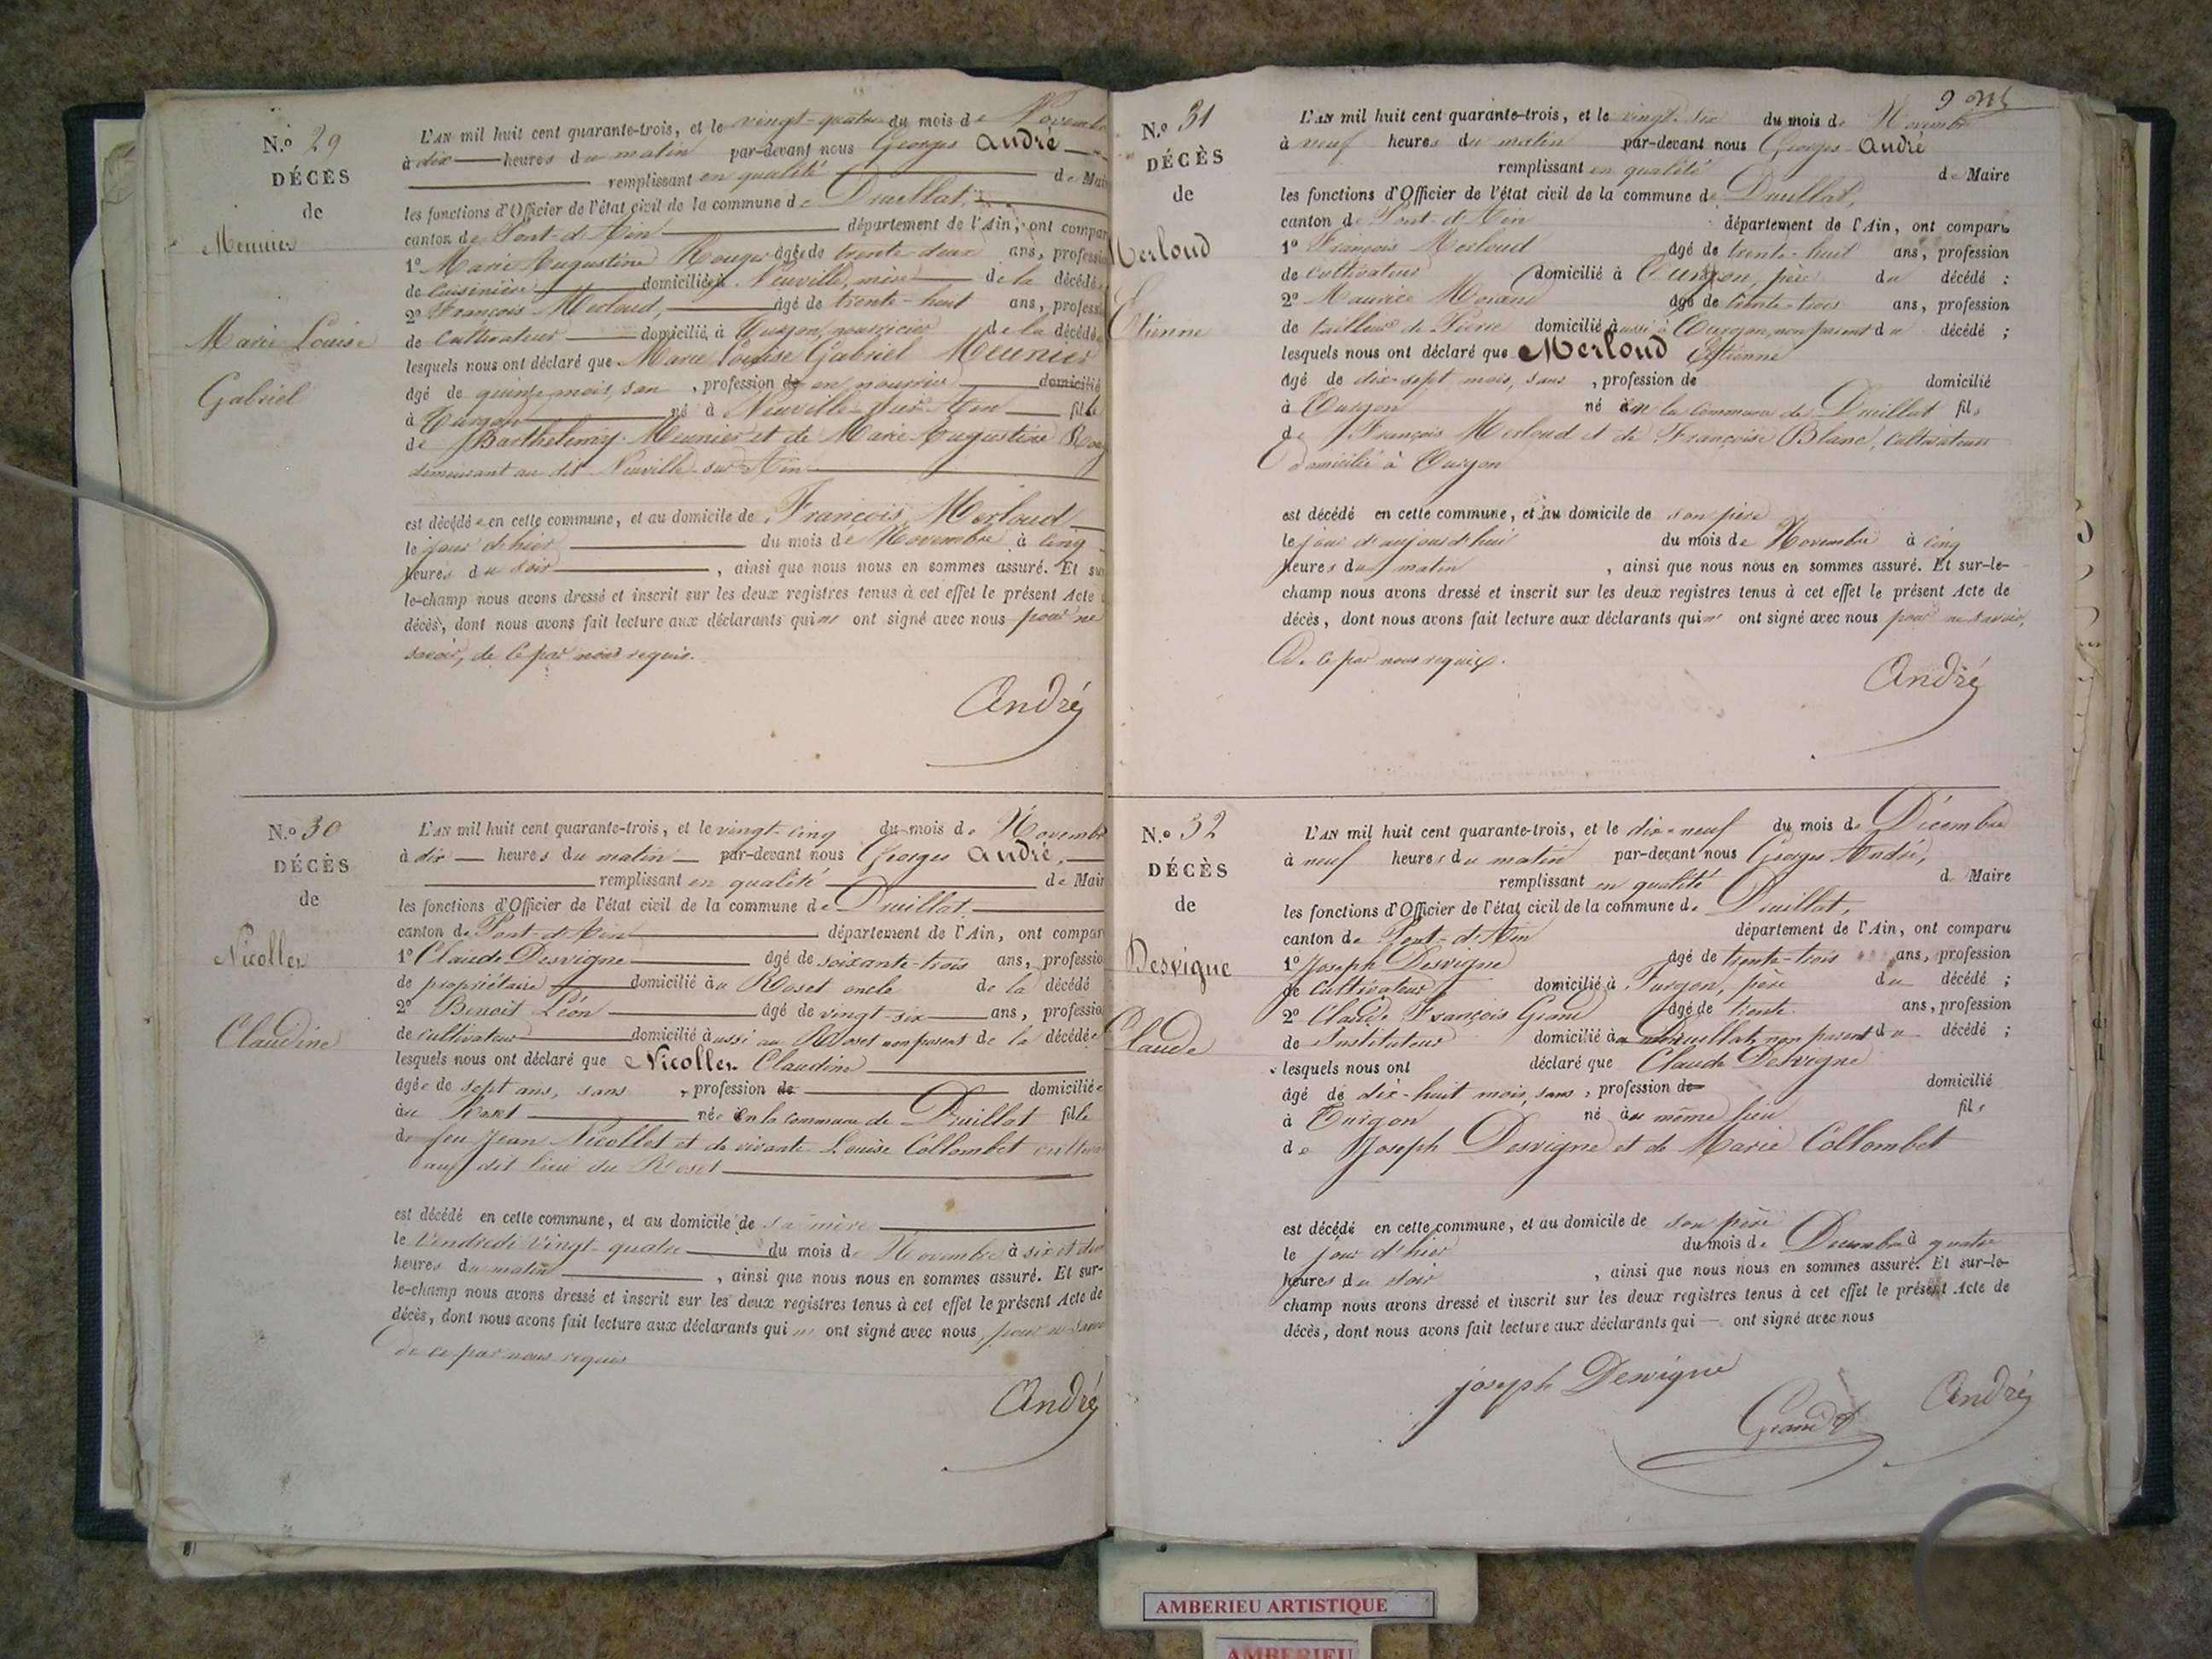 N.o 29
DÉCÈS
de
Meunier
Marie Louise
Gabriel
L'AN mil huit cent quarante-trois, et le vingt-quatre du mois de Novembre
à dix heures du matin par-devant nous Georges André
remplissant en qualité de Mai
les fonctions d'Officier de l'état civil de la commune de Druillat,
canton de Pont-d'Ain département de l'Ain, ont compar
1o Marie Augustine Rouge âgée de trente-deux ans, professi
de Cuisinière domiciliée à Neuville, mère de la décédée
2o François Merloud, âgé de trente-huit ans, professi
de Cultivateur domicilié à Turgon, nourricier de la décédée
lesquels nous ont déclaré que Marie Louise Gabriel Meunier
âgé de quinze mois, san , profession de en nourrice domicilié
à Turgon né à Neuville-sur-Ain fille
de Barthelemy Meunier et de Marie Augustine Roug
demeurant au dit Neuville-sur-Ain
est décédée en cette commune, et au domicile de François Merloud
le jour d'hier du mois de Novembre à cinq
heures du soir , ainsi que nous nous en sommes assuré. Et sur
le-champ nous avons dressé et inscrit sur les deux registres tenus à cet effet le présent Acte
décès, dont nous avons fait lecture aux déclarants qui n' ont signé avec nous pour ne
savoir, de ce par nous requis.
André
N.o 30
DÉCÈS
de
Nicollet
Claudine
L'AN mil huit cent quarante-trois, et le vingt-cinq du mois de Novembre
à dix heures du matin par-devant nous Georges André,
remplissant en qualité de Mair
les fonctions d'Officier de l'état civil de la commune de Druillat,
canton de Pont-d'Ain département de l'Ain, ont compar
1o Claude Desvigne âgé de soixante-trois ans, professio
de propriétaire domicilié au Roset oncle de la décédé
2o Benoit Léon âgé de vingt-six ans, professio
de cultivateur domicilié aussi au Roset non parent de la décédée
lesquels nous ont déclaré que Nicollet Claudine
âgée de sept ans, sans , profession de domiciliée
au Roset née en la commune de Druillat fille
de feu Jean Nicollet et de vivante Louise Collombet
au dit lieu du Roset
est décédé en cette commune, et au domicile de sa mère
le Vendredi vingt-quatre du mois de Novembre à six et
heures du matin , ainsi que nous nous en sommes assuré. Et sur-
le-champ nous avons dressé et inscrit sur les deux registres tenus à cet effet le présent Acte de
décès, dont nous avons fait lecture aux déclarants qui n' ont signé avec nous, pour ne savoir
de ce par nous requis
André
9
N.o 31
DÉCÈS
de
Merloud
Etienne
L'AN mil huit cent quarante-trois, et le vingt-six du mois de Novembre
à neuf heures du matin par-devant nous Georges André
remplissant en qualité de Maire
les fonctions d'Officier de l'état civil de la commune de Druillat,
canton de Pont-d'Ain département de l'Ain, ont comparu
1o François Merloud âgé de trente-huit ans, profession
de cultivateur domicilié à Turgon, père du décédé ;
2o Maurice Morand âgé de trente-trois ans, profession
de tailleur de Pierre domicilié aussi à Turgon, non parent du décédé ;
lesquels nous ont déclaré que Merloud Etienne
âgé de dix-sept mois, sans , profession de domicilié
à Turgon né en la commune de Druillat fils
de François Merloud et de Françoise Blanc, cultivateurs
domicilié à Turgon
est décédé en cette commune, et au domicile de son père
le jour d'aujourd'hui du mois de Novembre à cinq
heures du matin , ainsi que nous nous en sommes assuré. Et sur-le-
champ nous avons dressé et inscrit sur les deux registres tenus à cet effet le présent Acte de
décès, dont nous avons fait lecture aux déclarants qui n' ont signé avec nous pour ne savoir,
de ce par nous requis.
André
N.o 32
DÉCÈS
de
Desvigne
Claude
L'AN mil huit cent quarante-trois, et le dix-neuf du mois de Décembre
à neuf heures du matin par-devant nous Georges André,
remplissant en qualité d Maire
les fonctions d'Officier de l'état civil de la commune de Druillat,
canton de Pont-d'Ain département de l'Ain, ont comparu
1o Joseph Desvigne âgé de trente-trois ans, profession
de Cultivateur domicilié à Turgon, père du décédé ;
2o Claude François Grand âgé de trente ans, profession
de Instituteur domicilié à Druillat, non parent du décédé ;
lesquels nous ont déclaré que Claude Desvigne
âgé de dix-huit mois, sans , profession de domicilié
à Turgon né au même lieu fils
de Joseph Desvigne et de Marie Collombet
est décédé en cette commune, et au domicile de son père
le jour d'hier du mois de Décembre à quatre
heures du soir , ainsi que nous nous en sommes assuré. Et sur-le-
champ nous avons dressé et inscrit sur les deux registres tenus à cet effet le présent Acte de
décès, dont nous avons fait lecture aux déclarants qui — ont signé avec nous
joseph Desvigne
Grand
André
AMBERIEU ARTISTIQUE
AMBERIEU